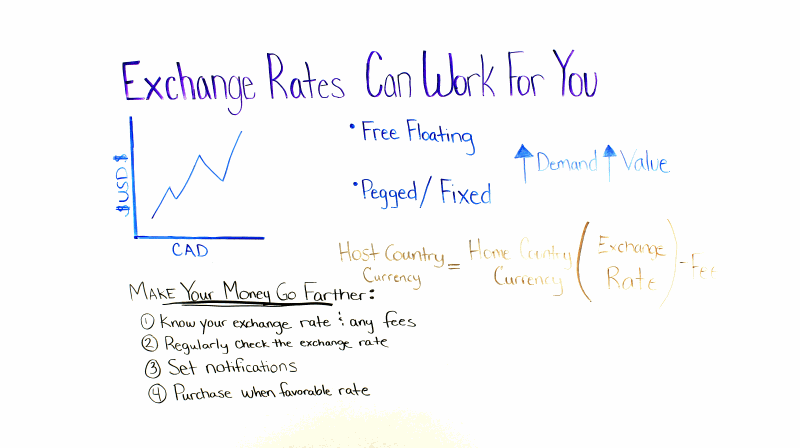 Exchange Rates Can Work For You
$USD$
CAD
• Free Floating
• Pegged/Fixed
↑ Demand ↑ Value
Host Country Currency = Home Country Currency (Exchange Rate) - Fee
Make Your Money Go Farther:
① Know your exchange rate & any fees
② Regularly check the exchange rate
③ Set notifications
④ Purchase when favorable rate